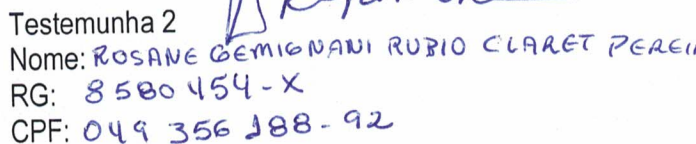 Testemunha 2
Nome: ROSANE GEMIGNANI RUBIO CLARET
RG: 8580454-X
CPF: 049 356 188-92